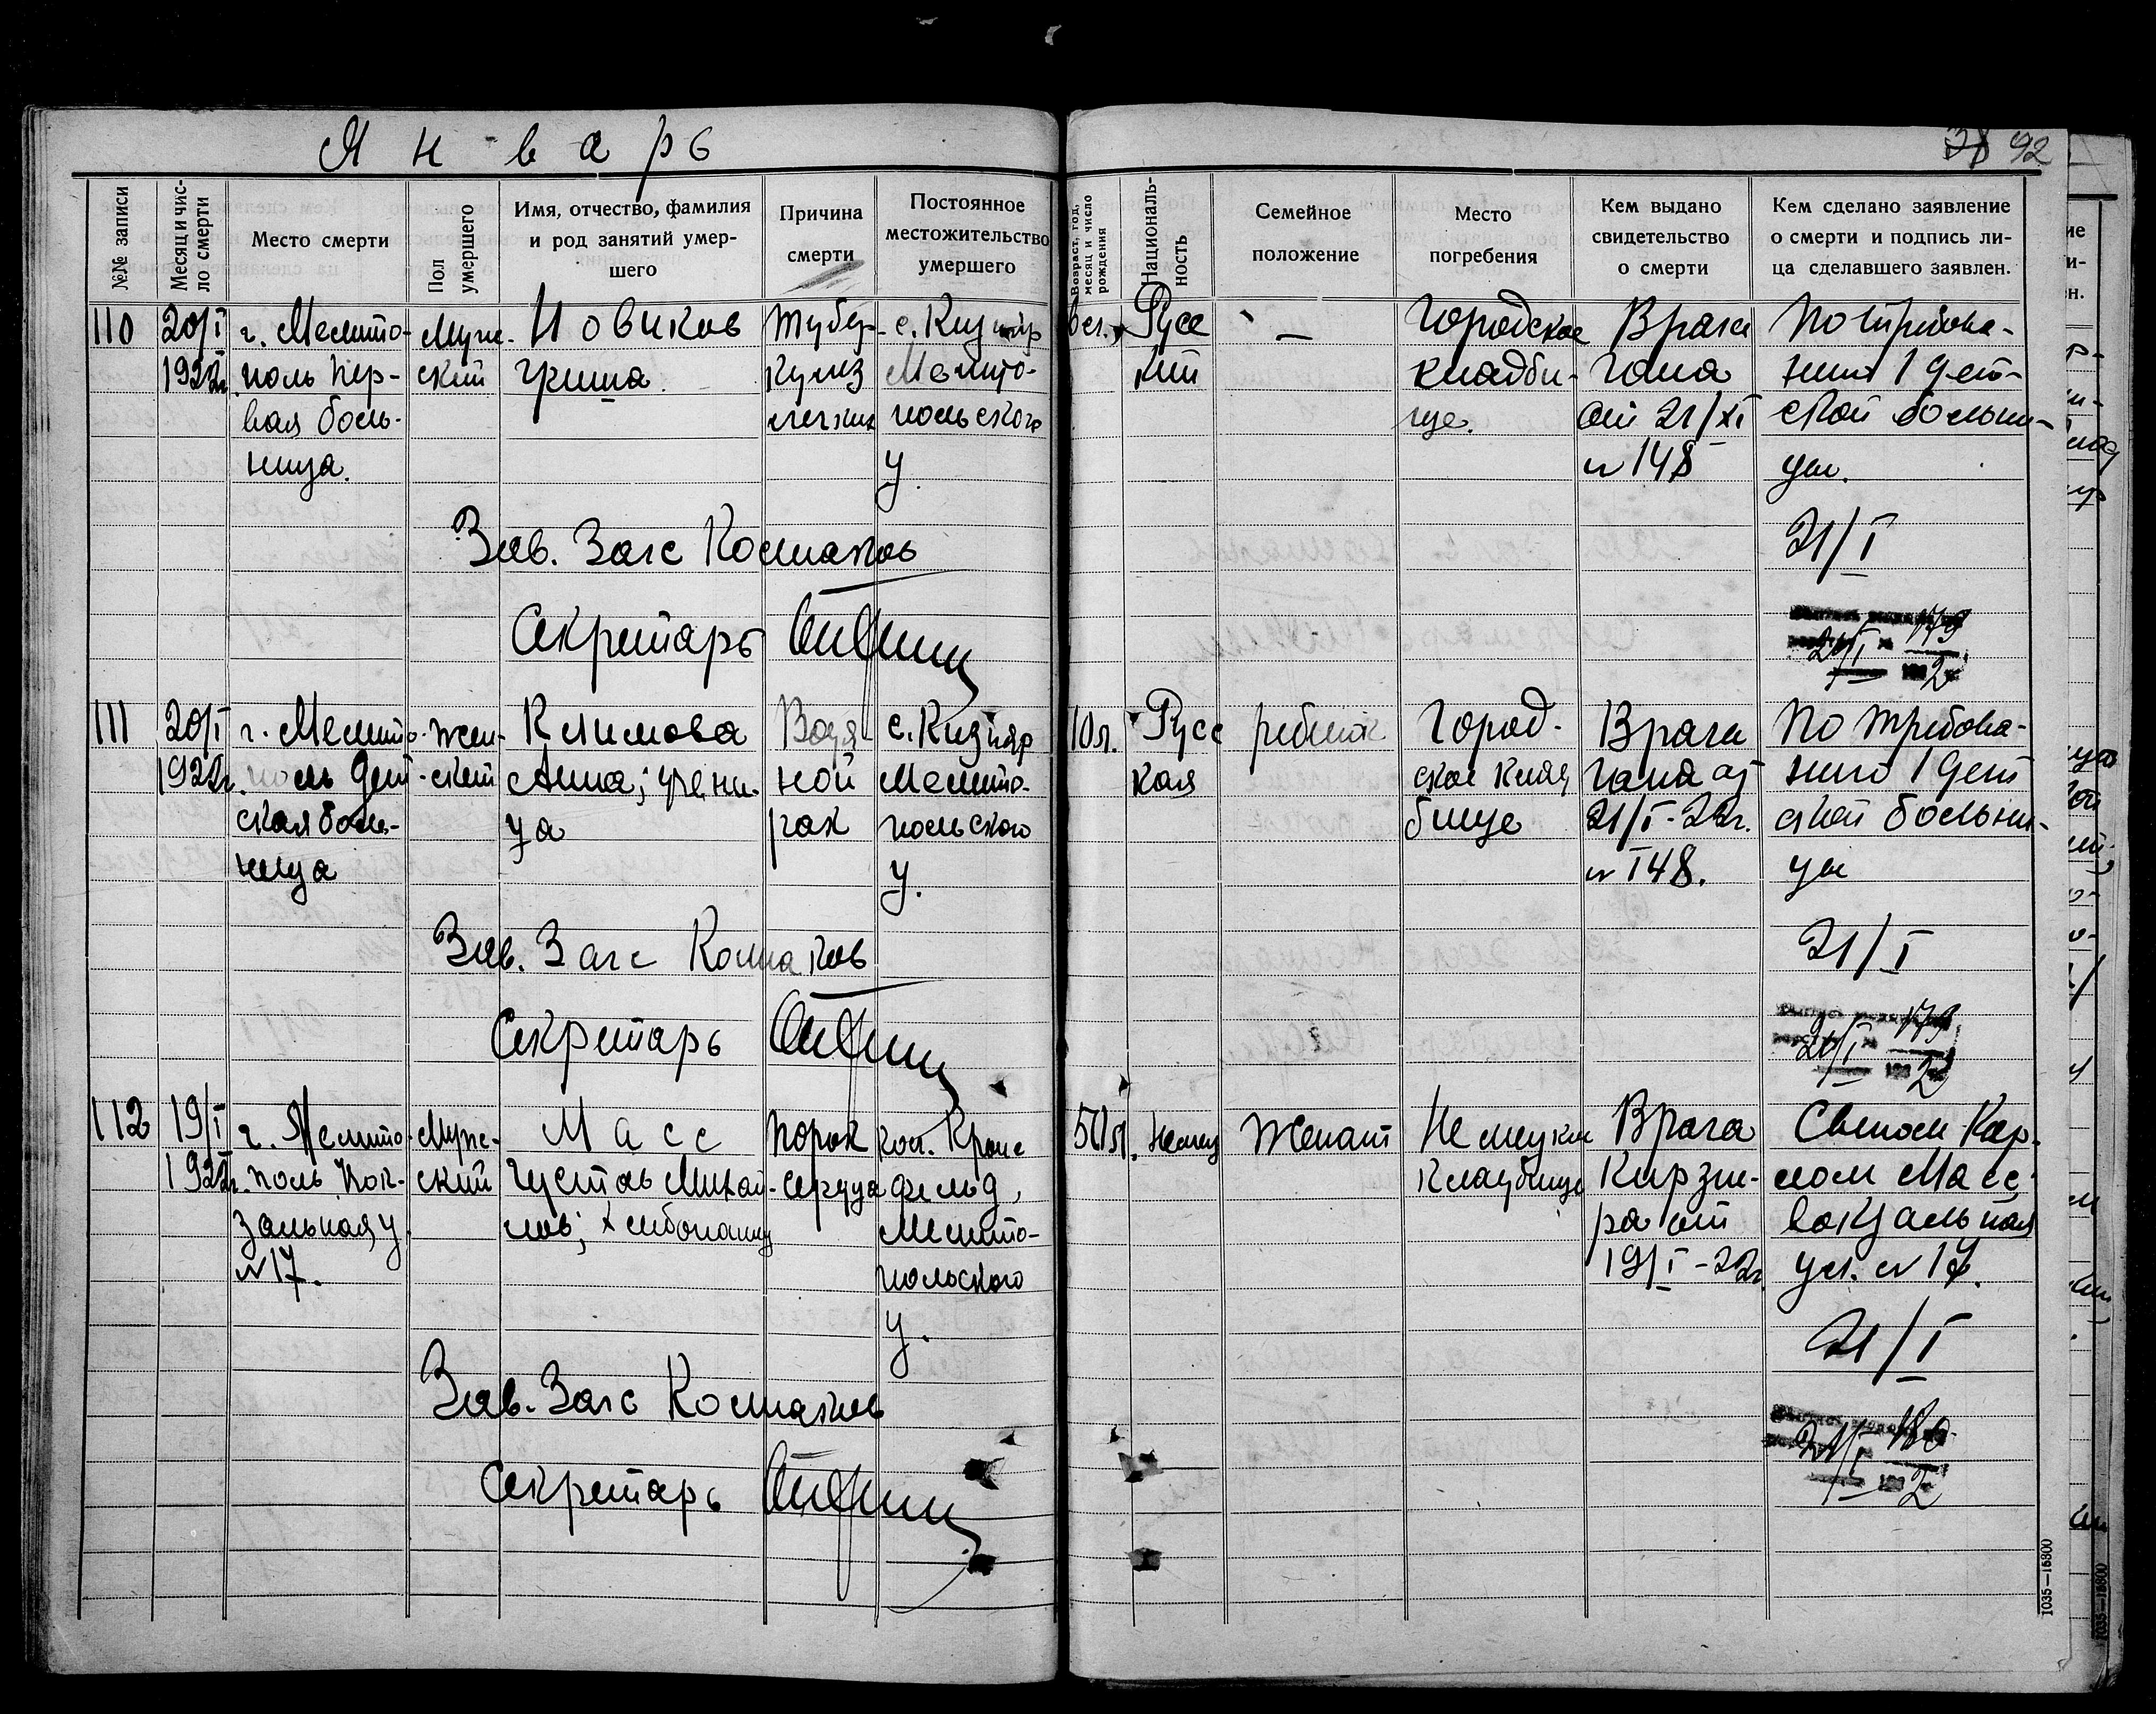 Январь
92
№№ записи
Месяц и чис-
ло смерти
Место смерти
Пол
умершего
Имя, отчество, фамилия
и род занятий умер-
шего
Причина
смерти
Постоянное
местожительство
умершего
Возраст, год,
месяц и число
рождения
Националь-
ность
Семейное
положение
Место
погребения
Кем выдано
свидетельство
о смерти
Кем сделано заявление
о смерти и подпись ли-
ца сделавшего заявлен.
110
20/I
1922г.
г. Мелито-
поль Пер-
вая боль-
ница.
Муж-
ский
Новиков
Гриша
Тубер-
кулез
легких
с. Кизияр
Мелито-
польского
у.
6 л.
Русс
кий
—
Городское
кладби-
ще.
Врача
Гана
от 21/XI
№ 148
По требова-
нию 1 дет-
ской больни-
цы.
21/I
Зав. Загс
Секретарь
21/I 179
2
111
20/I
1922г.
г. Мелито-
поль Дет-
ская боль-
ница
Жен-
ский
Климова
Анна; учени-
ца
Водя
ной
рак
с. Кизияр
Мелито-
польского
у.
10 л.
Русс
кая
ребенок
Город-
ское клад
бище
Врача
Гана от
21/I-22г.
№ 148.
По требова-
нию 1 дет
ской больни-
цы
21/I
Зав. Загс
Секретарь
21/I 179
2
112
19/I
1922г.
г. Мелито-
поль, Вок-
зальная у.
№ 17.
Муж-
ский
Масс
Густав Михай-
лов; хлебопашец
порок
сердца
кол. Кронс
фельд,
Мелито-
польского
у.
немец
Женат
Немецкое
кладбище
Врача
Кирзне-
ра от
19/I-22г
Сыном Кар-
лом Масс;
вокзальная
ул. № 17.
21/I
Зав. Загс
Секретарь
21/I 180
2
1035—15800